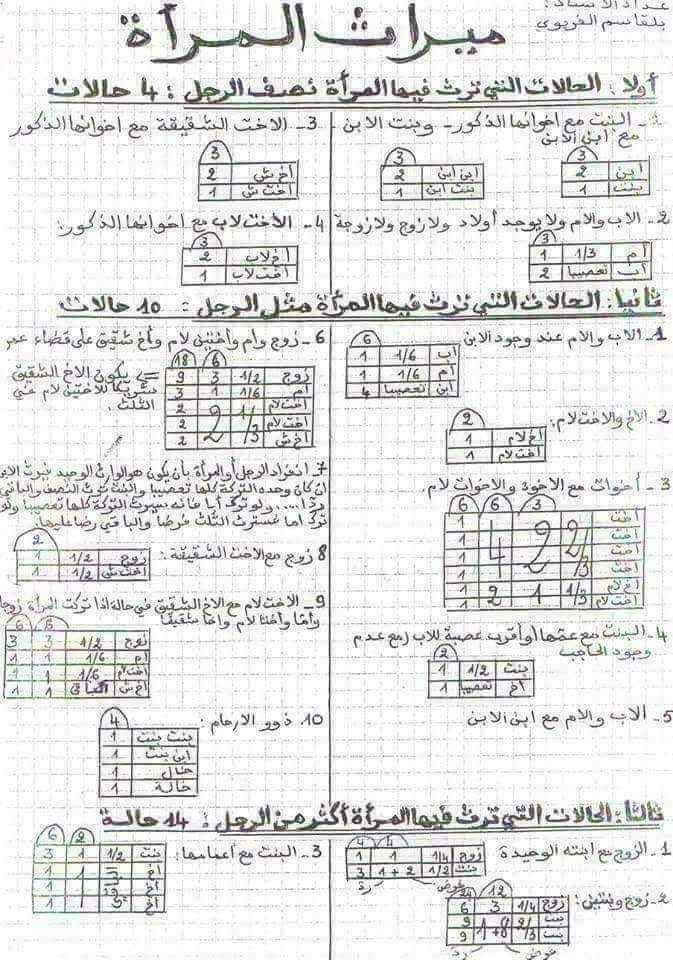 عداد الأستاذ:
بلقاسم الغريوي
ميراث المرأة
أولا: الحالات التي ترث فيها المرأة نصف الرجل: 4 حالات
1- البنت مع اخوانها الذكور - وبنت الابن
مع ابن الابن
3
ابن 2
بنت 1
3
ابن ابن 2
بنت ابن 1
2- الاب والام ولا يوجد أولاد ولا زوج ولا زوجة
3
أم 1/3 1
أب تعصيبا 2
3- الاخت الشقيقة مع اخوانها الذكور
3
أخ ش 2
اخت ش 1
4- الأخت لاب مع اخوانها الذكور:
3
أخ لاب 2
اخت لاب 1
ثانيا: الحالات التي ترث فيها المرأة مثل الرجل: 10 حالات
1- الاب والام عند وجود الابن
6
أب 1/6 1
أم 1/6 1
ابن تعصيبا 4
2- الاخ والاخت لام:
2
أخ لام 1
اخت لام 1
3- أخوات مع الاخوة والاخوات لام
3 6 6
اخت 2/3 2 4 1
اخت 1
اخت 1
اخت 1
أخ لام 1/3 1 2 1
اخت لام 1
4- البنت مع عمها أو أقرب عصبة للاب (مع عدم
وجود الحاجب
2
بنت 1/2 1
أخ تعصيبا 1
5- الاب والام مع ابن الابن
6- زوج وام واختين لام وأخ شقيق على قضاء عمر
6 18
زوج 1/2 3 9
أم 1/6 1 3
اخت لام 1/3 2 2
اخت لام 2
أخ ش 2
<= يكون الاخ الشقيق
شريكا للاختين لام في
الثلث.
7- انفراد الرجل أو المرأة بأن يكون هو الوارث الوحيد يرث الابن
ان كان وحده التركة كلها تعصيبا والبنت ترث النصف والباقي
ردا .... ولو ترك أبا فانه سيرث التركة كلها تعصيبا ولو
ترك اما فسترث الثلث فرضا والباقي ردا عليها.
8 زوج مع الاخت الشقيقة:
2
زوج 1/2 1
اخت ش 1/2 1
9- الاخت لام مع الاخ الشقيق في حالة اذا تركت المرأة زوجا
وأما وأختا لام وأخا شقيقا
6 6
زوج 1/2 3 3
أم 1/6 1 1
اخت لام 1/6 1 1
أخ ش الباقي 1 1
10. ذوو الارحام:
4
بنت بنت 1
ابن بنت 1
خال 1
خالة 1
ثالثا: الحالات التي ترث فيها المرأة أكثر من الرجل: 14 حالة
1- الزوج مع ابنته الوحيدة
4 4
زوج 1/4 1 1
بنت 1/2 2 + 1 3
فرض
ردا
2- زوج وبنتين:
12 24
زوج 1/4 3 6
بنت 2/3 8+1 9
بنت 9
فرض
ردا
3- البنت مع أعمامها:
2 6
بنت 1/2 1 3
أخ 1 1
أخ 1
أخ 1